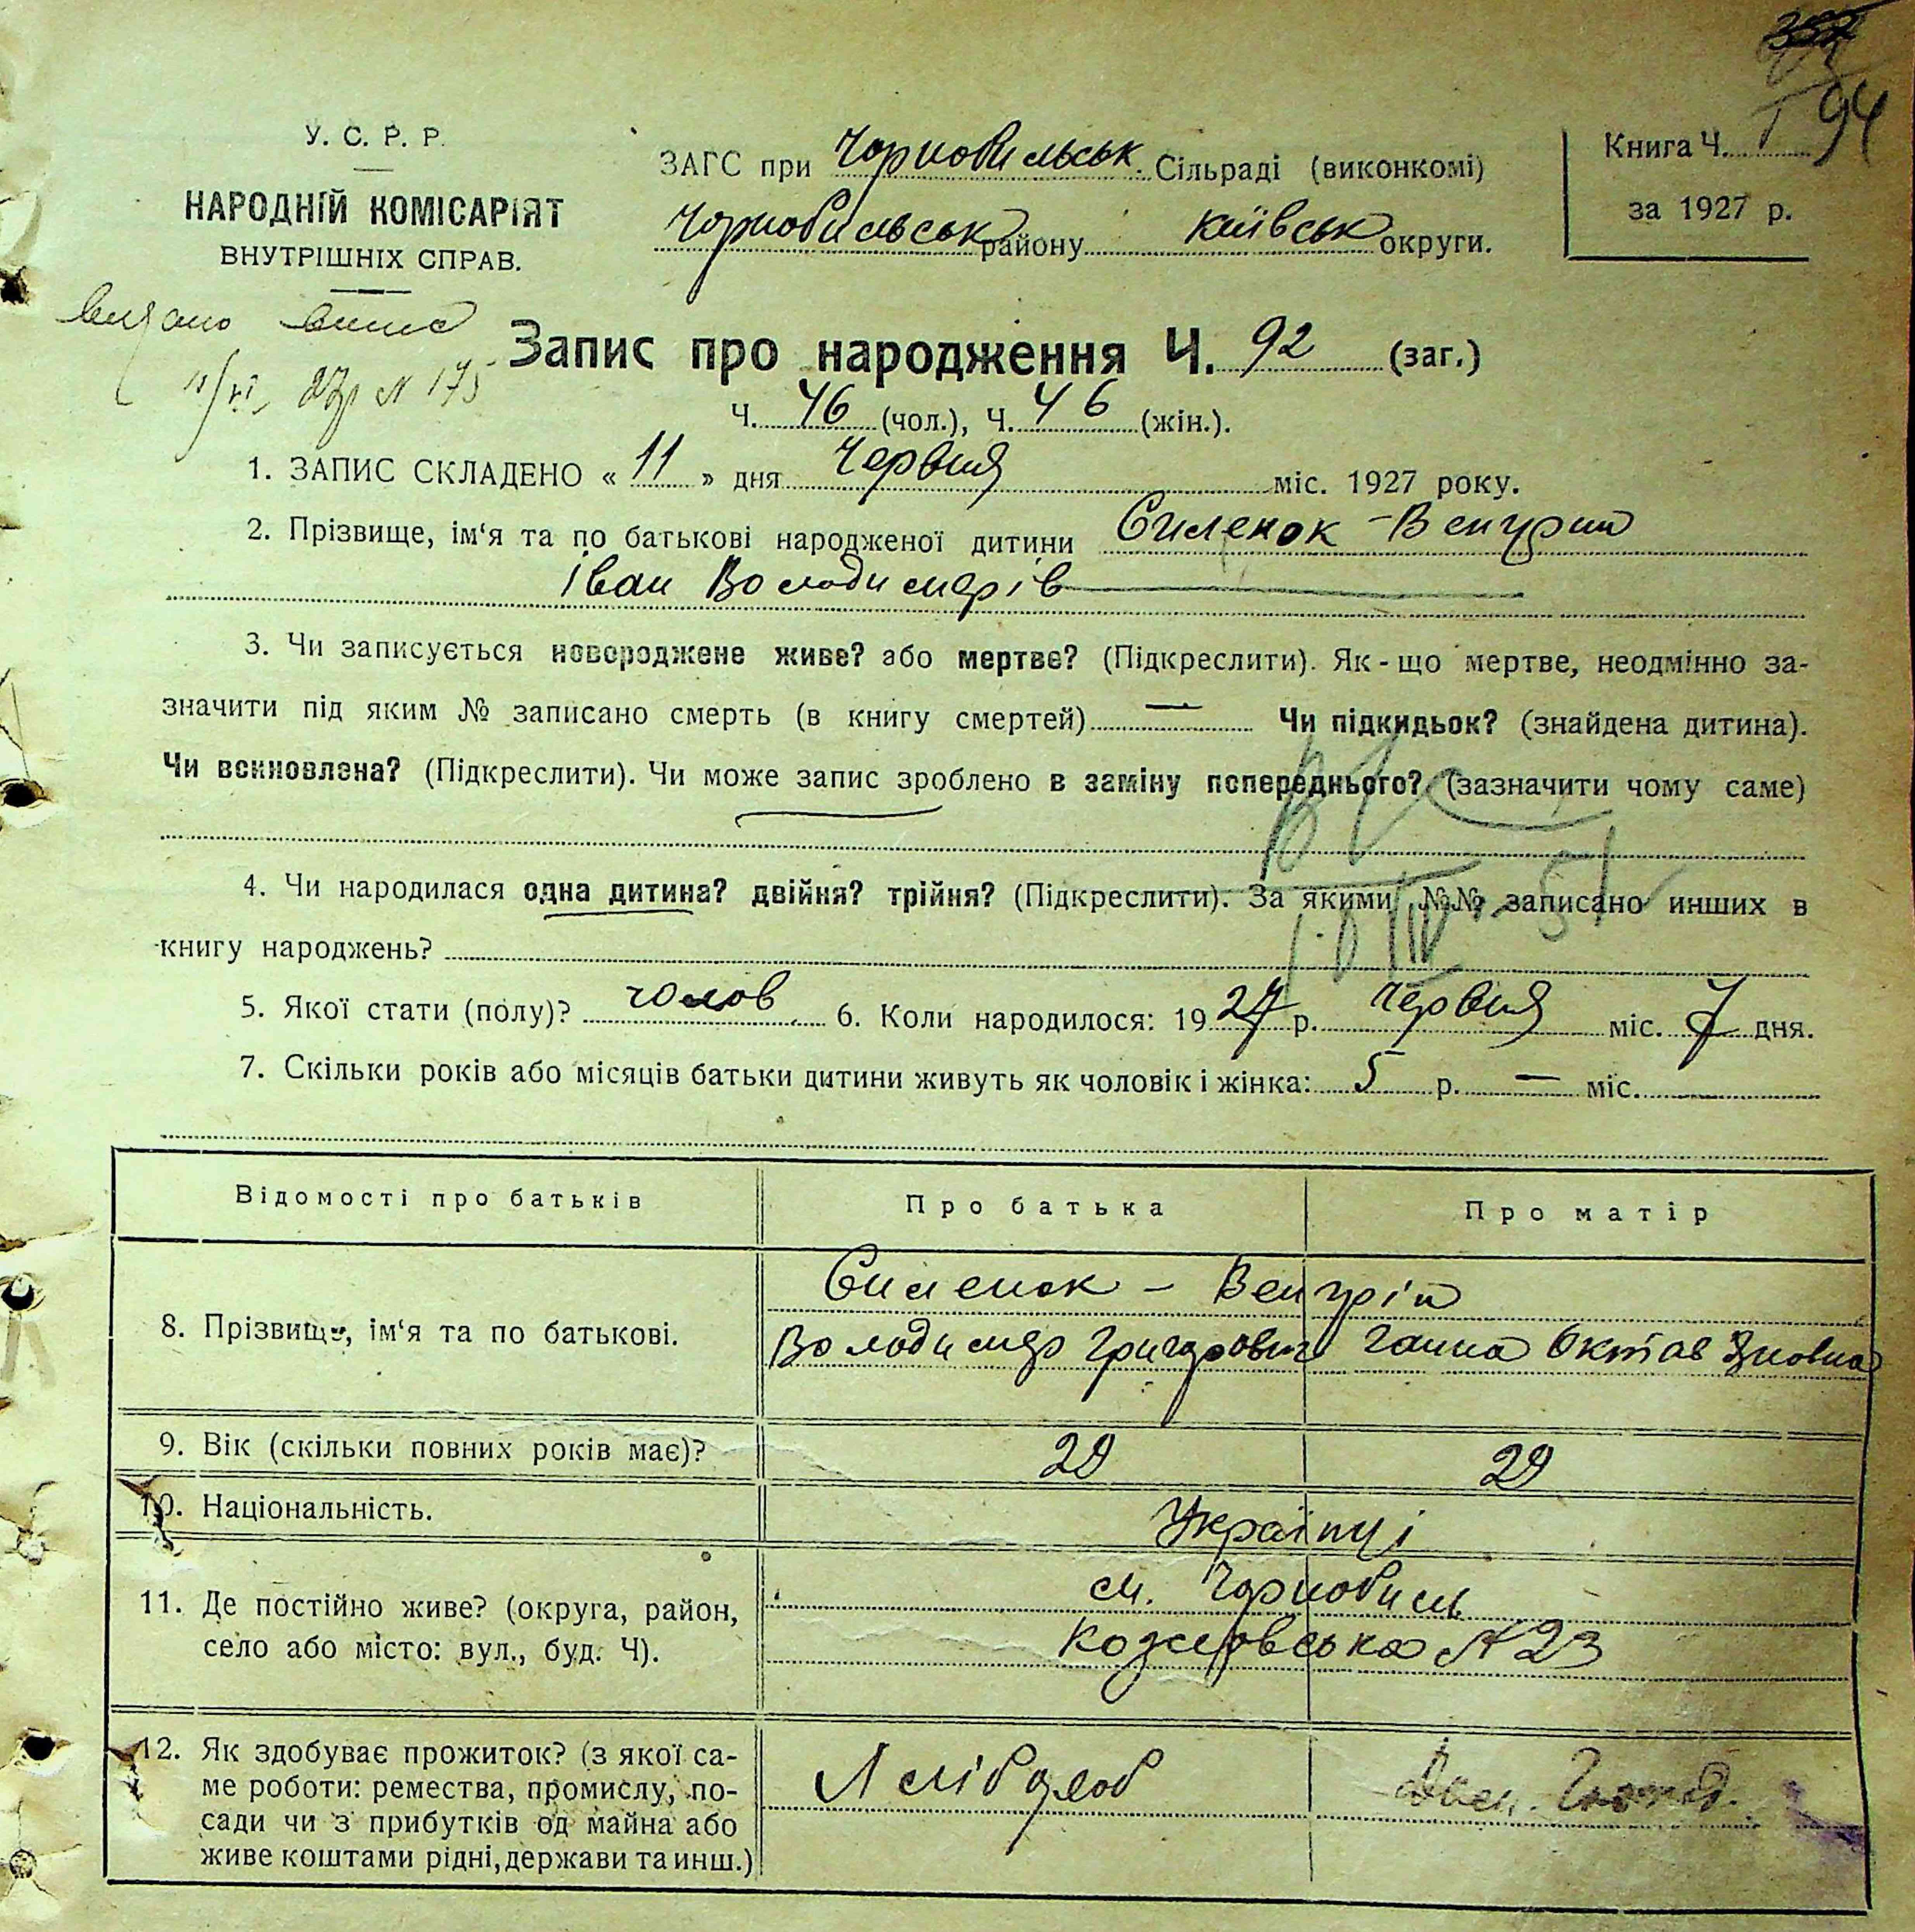 94
У. С. Р. Р.
НАРОДНІЙ КОМІСАРІЯТ
ВНУТРІШНІХ СПРАВ.
ЗАГС при Чорнобильськ. Сільраді (виконкомі)
Чорнобильськ району Київськ округи.
Книга Ч. I
за 1927 р.
видано випис
27р N 175
Запис про народження Ч. 92 (заг.)
Ч. 46 (чол.), Ч. 46 (жін.).
1. ЗАПИС СКЛАДЕНО « 11 » дня Червня міс. 1927 року.
2. Прізвище, ім‘я та по батькові народженої дитини Силенок - Венгрин
Іван Володимерів
3. Чи записується новороджене живе? або мертве? (Підкреслити). Як-що мертве, неодмінно за-
значити під яким № записано смерть (в книгу смертей) — Чи підкидьок? (знайдена дитина).
Чи всиновлена? (Підкреслити). Чи може запис зроблено в заміну попереднього? (зазначити чому саме)
4. Чи народилася одна дитина? двійня? трійня? (Підкреслити). За якими №№ записано инших в
книгу народжень?
5. Якої стати (полу)? чолов 6. Коли народилося: 1927 р. Червня міс. 7 дня.
7. Скільки років або місяців батьки дитини живуть як чоловік і жінка: 5 р. — міс.
Відомості про батьків Про батька Про матір
8. Прізвище, ім‘я та по батькові. Силенок - Венгрін
Володимер Григорович Ганна Октавзновна
9. Вік (скільки повних років має)? 29 29
10. Національність. Українці
11. Де постійно живе? (округа, район,
село або місто: вул., буд. Ч).
м. Чорнобиль
N 23
12. Як здобуває прожиток? (з якої са-
ме роботи: ремества, промислу, по-
сади чи з прибутків од майна або
живе коштами рідні, держави та инш.)
Хлібороб